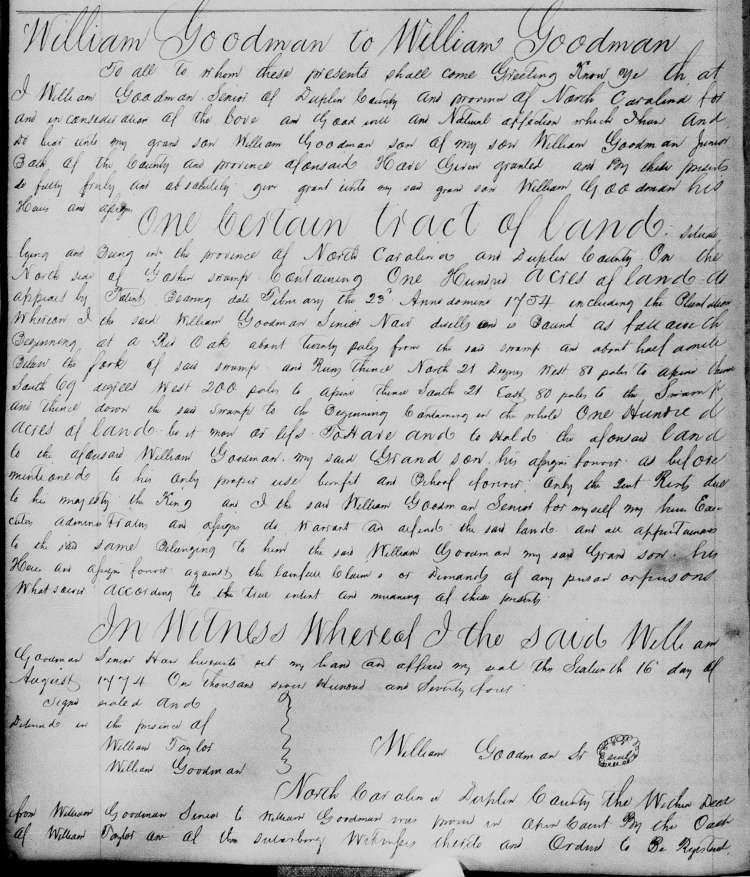 William Goodman to William Goodman
To all to whom these presents shall come Greeting Know ye that
I William Goodman Senior of Duplin County and province of North Carolina for
and in consideration of the love and Good will and Natural affection which I have and
do bear unto my grand son William Goodman son of my son William Goodman Junior
Both of the County and province aforesaid Have Given granted and By these presents
do fully freely and absolutely give grant unto my said grand son William Goodman his
Heirs and assigns One Certain tract of land. Situate
lying and Being in the province of North Carolina and Duplin County On the
North side of Goshen swamp Containing One Hundred acres of land as
appears by Patent Bearing date February the 23d Anno domini 1754 including the Plantation
Whereon I the said William Goodman Senior Now dwells and is Bound as followeth
Beginning at a Red Oak about twenty poles from the said swamp and about half a mile
Below the fork of said swamp and Runs thence North 21 Degrees West 80 poles to a pine thence
South 69 degrees West 200 poles to a pine thence South 21 East 80 poles to the Swamp
and thence down the said Swamp to the Beginning Containing in the whole One Hundred
acres of land be it more or less To Have and to Hold the aforesaid land
to the aforesaid William Goodman my said Grand son his assigns forever as before
mentioned to his only proper use benefit and Behoof forever Only the Quit Rents due
to his magesty the King and I the said William Goodman Senior for myself my heirs Exe-
cutors administrators and assigns do warrant and defend the said land and all appurtenances
to the said same Belonging to him the said William Goodman my said Grand son his
Heirs and assigns forever against the lawfull Claims or Demands of any person or persons
Whatsoever according to the true intent and meaning of these presents
In Witness Whereof I the said William
Goodman Senior Have hereunto set my hand and affixed my seal this Sixteenth 16 day of
August 1774 One thousand seven Hundred and Seventy four
Signed sealed and
Delivered in the presence of
William Taylor
William Goodman
William Goodman Sr seal
North Carolina Duplin County the Within Deed
from William Goodman Senior to William Goodman was proven in open Court By the Oath
of William Taylor one of the subscribing Witnesses thereto and Ordered to Be Registered